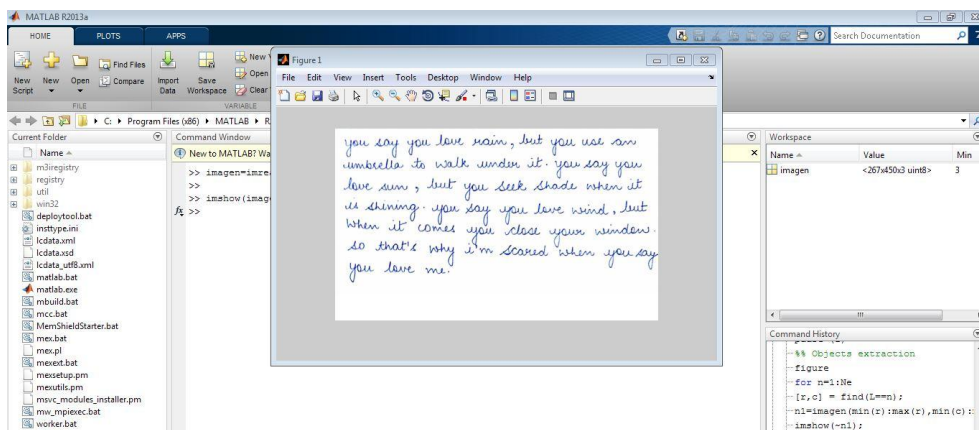 MATLAB R2013a
HOME PLOTS APPS
Search Documentation
New Script
New
Open
Find Files
Compare
Import Data
Save Workspace
New
Open
Clear
FILE
VARIABLE
C: ▸ Program Files (x86) ▸ MATLAB ▸
Current Folder
Name
m3iregistry
registry
util
win32
deploytool.bat
insttype.ini
lcdata.xml
lcdata.xsd
lcdata_utf8.xml
matlab.bat
matlab.exe
mbuild.bat
mcc.bat
MemShieldStarter.bat
mex.bat
mex.pl
mexext.bat
mexsetup.pm
mexutils.pm
msvc_modules_installer.pm
mw_mpiexec.bat
worker.bat
Command Window
New to MATLAB? Wa
>> imagen=imre
>>
>> imshow(imag
fx >>
Figure 1
File Edit View Insert Tools Desktop Window Help
you say you love rain, but you use an
umbrella to walk under it. you say you
love sun, but you seek shade when it
is shining. you say you love wind, but
when it comes you close your window.
so that's why i'm scared when you say
you love me.
Workspace
Name Value Min
imagen <267x450x3 uint8> 3
Command History
%% Objects extraction
figure
for n=1:Ne
[r,c] = find(L==n);
n1=imagen(min(r):max(r),min(c):
imshow(~n1);